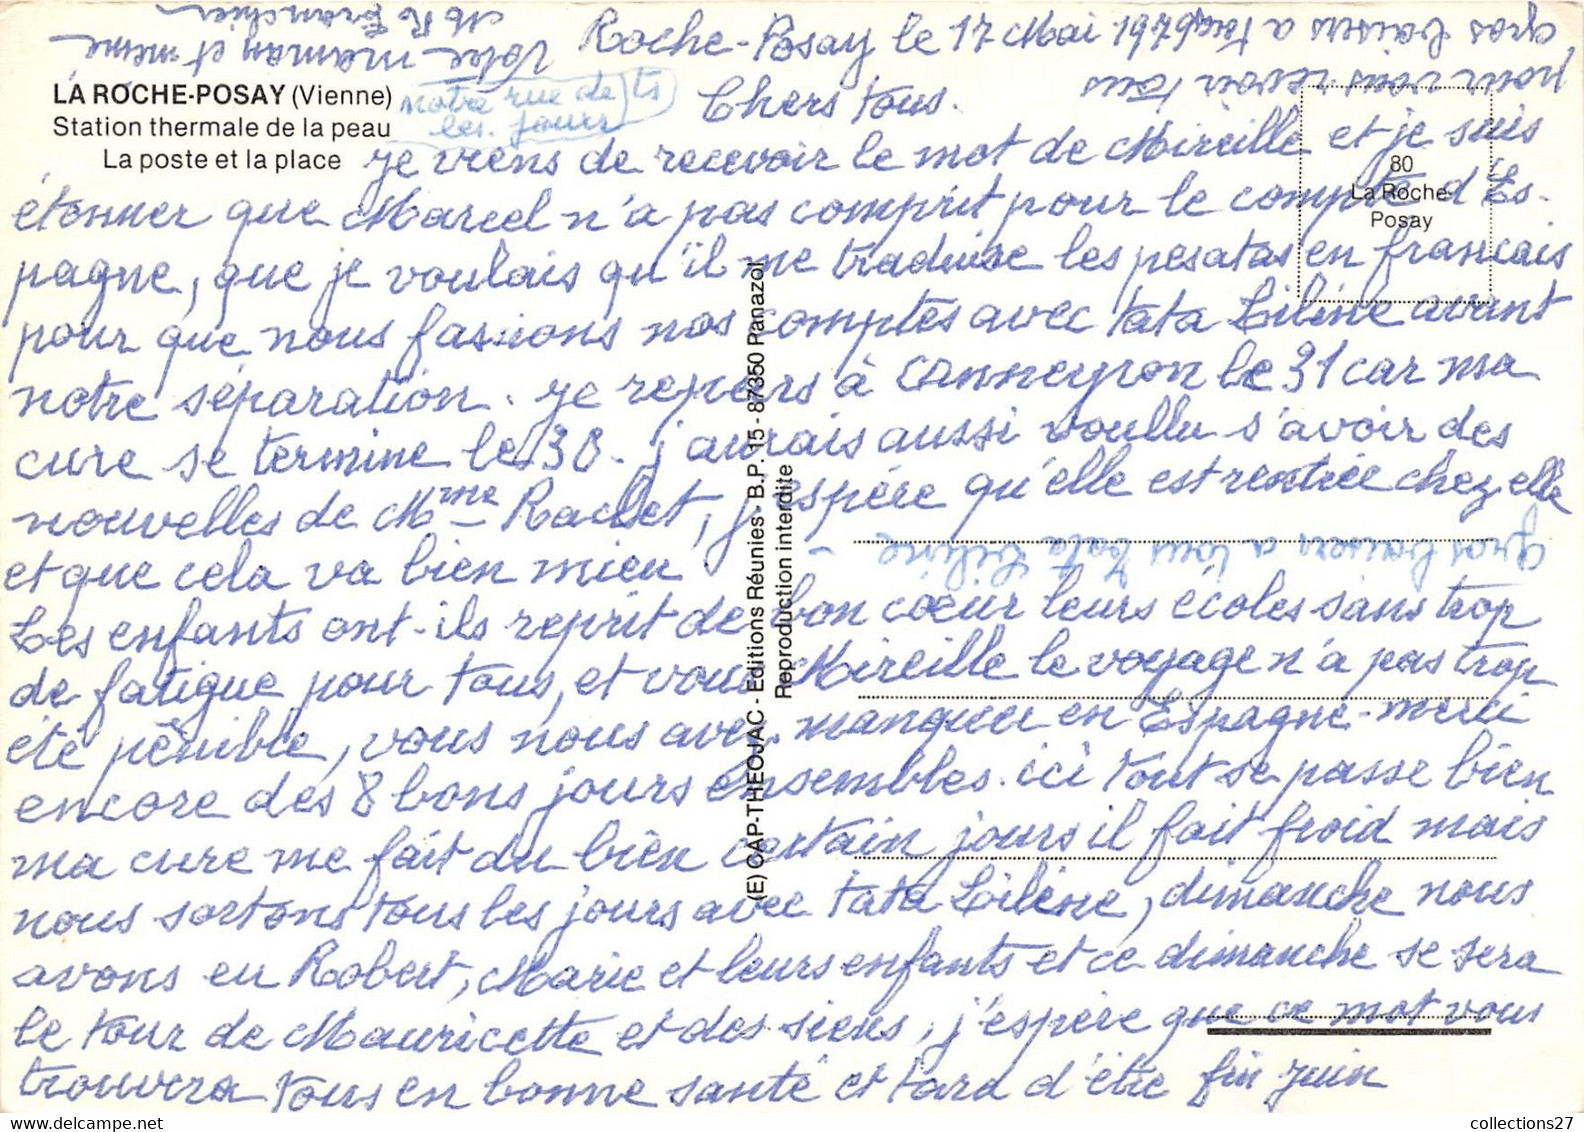 LA ROCHE-POSAY (Vienne)
Station thermale de la peau
La poste et la place
notre rue de ts
les jours
80
La Roche-
Posay
(E) CAP-THEOJAC - Editions Réunies - B.P. 15 - 87350 Panazol
Reproduction interdite
Roche-Posay le 17 Mai 1979
Chers tous.
je viens de recevoir le mot de Mireille et je suis
étonner que Marcel n'a pas comprit pour le compte d'Es-
pagne, que je voulais qu'il me traduise les pesatas en francais
pour que nous fassions nos comptes avec tata Liline avant
notre séparation. je repars à Conneyron le 31 car ma
cure se termine le 30. j'aurais aussi voullu s'avoir des
nouvelles de Mme Rachet, j'espére qu'elle est rentrée chez elle
et que cela va bien mieu
Les enfants ont-ils reprit de bon coeur leurs écoles sans trop
de fatigue pour tous, et vous Mireille le voyage n'a pas trop
été pénible, vous nous avez manquer en Espagne. merci
encore des 8 bons jours ensembles. ici tout se passe bien
ma cure me fait du bien certain jours il fait froid mais
nous sortons tous les jours avec tata Liline, dimanche nous
avons eu Robert, Marie et leurs enfants et ce dimanche se sera
le tour de Mauricette et des siens, j'espére que ce mot vous
trouvera tous en bonne santé et tard d'être fin juin
pour vous revoir tous
gros baisers a tous
Votre maman et mémé
M R Franchier
Gros baisers a tous tata Liline -
collections27